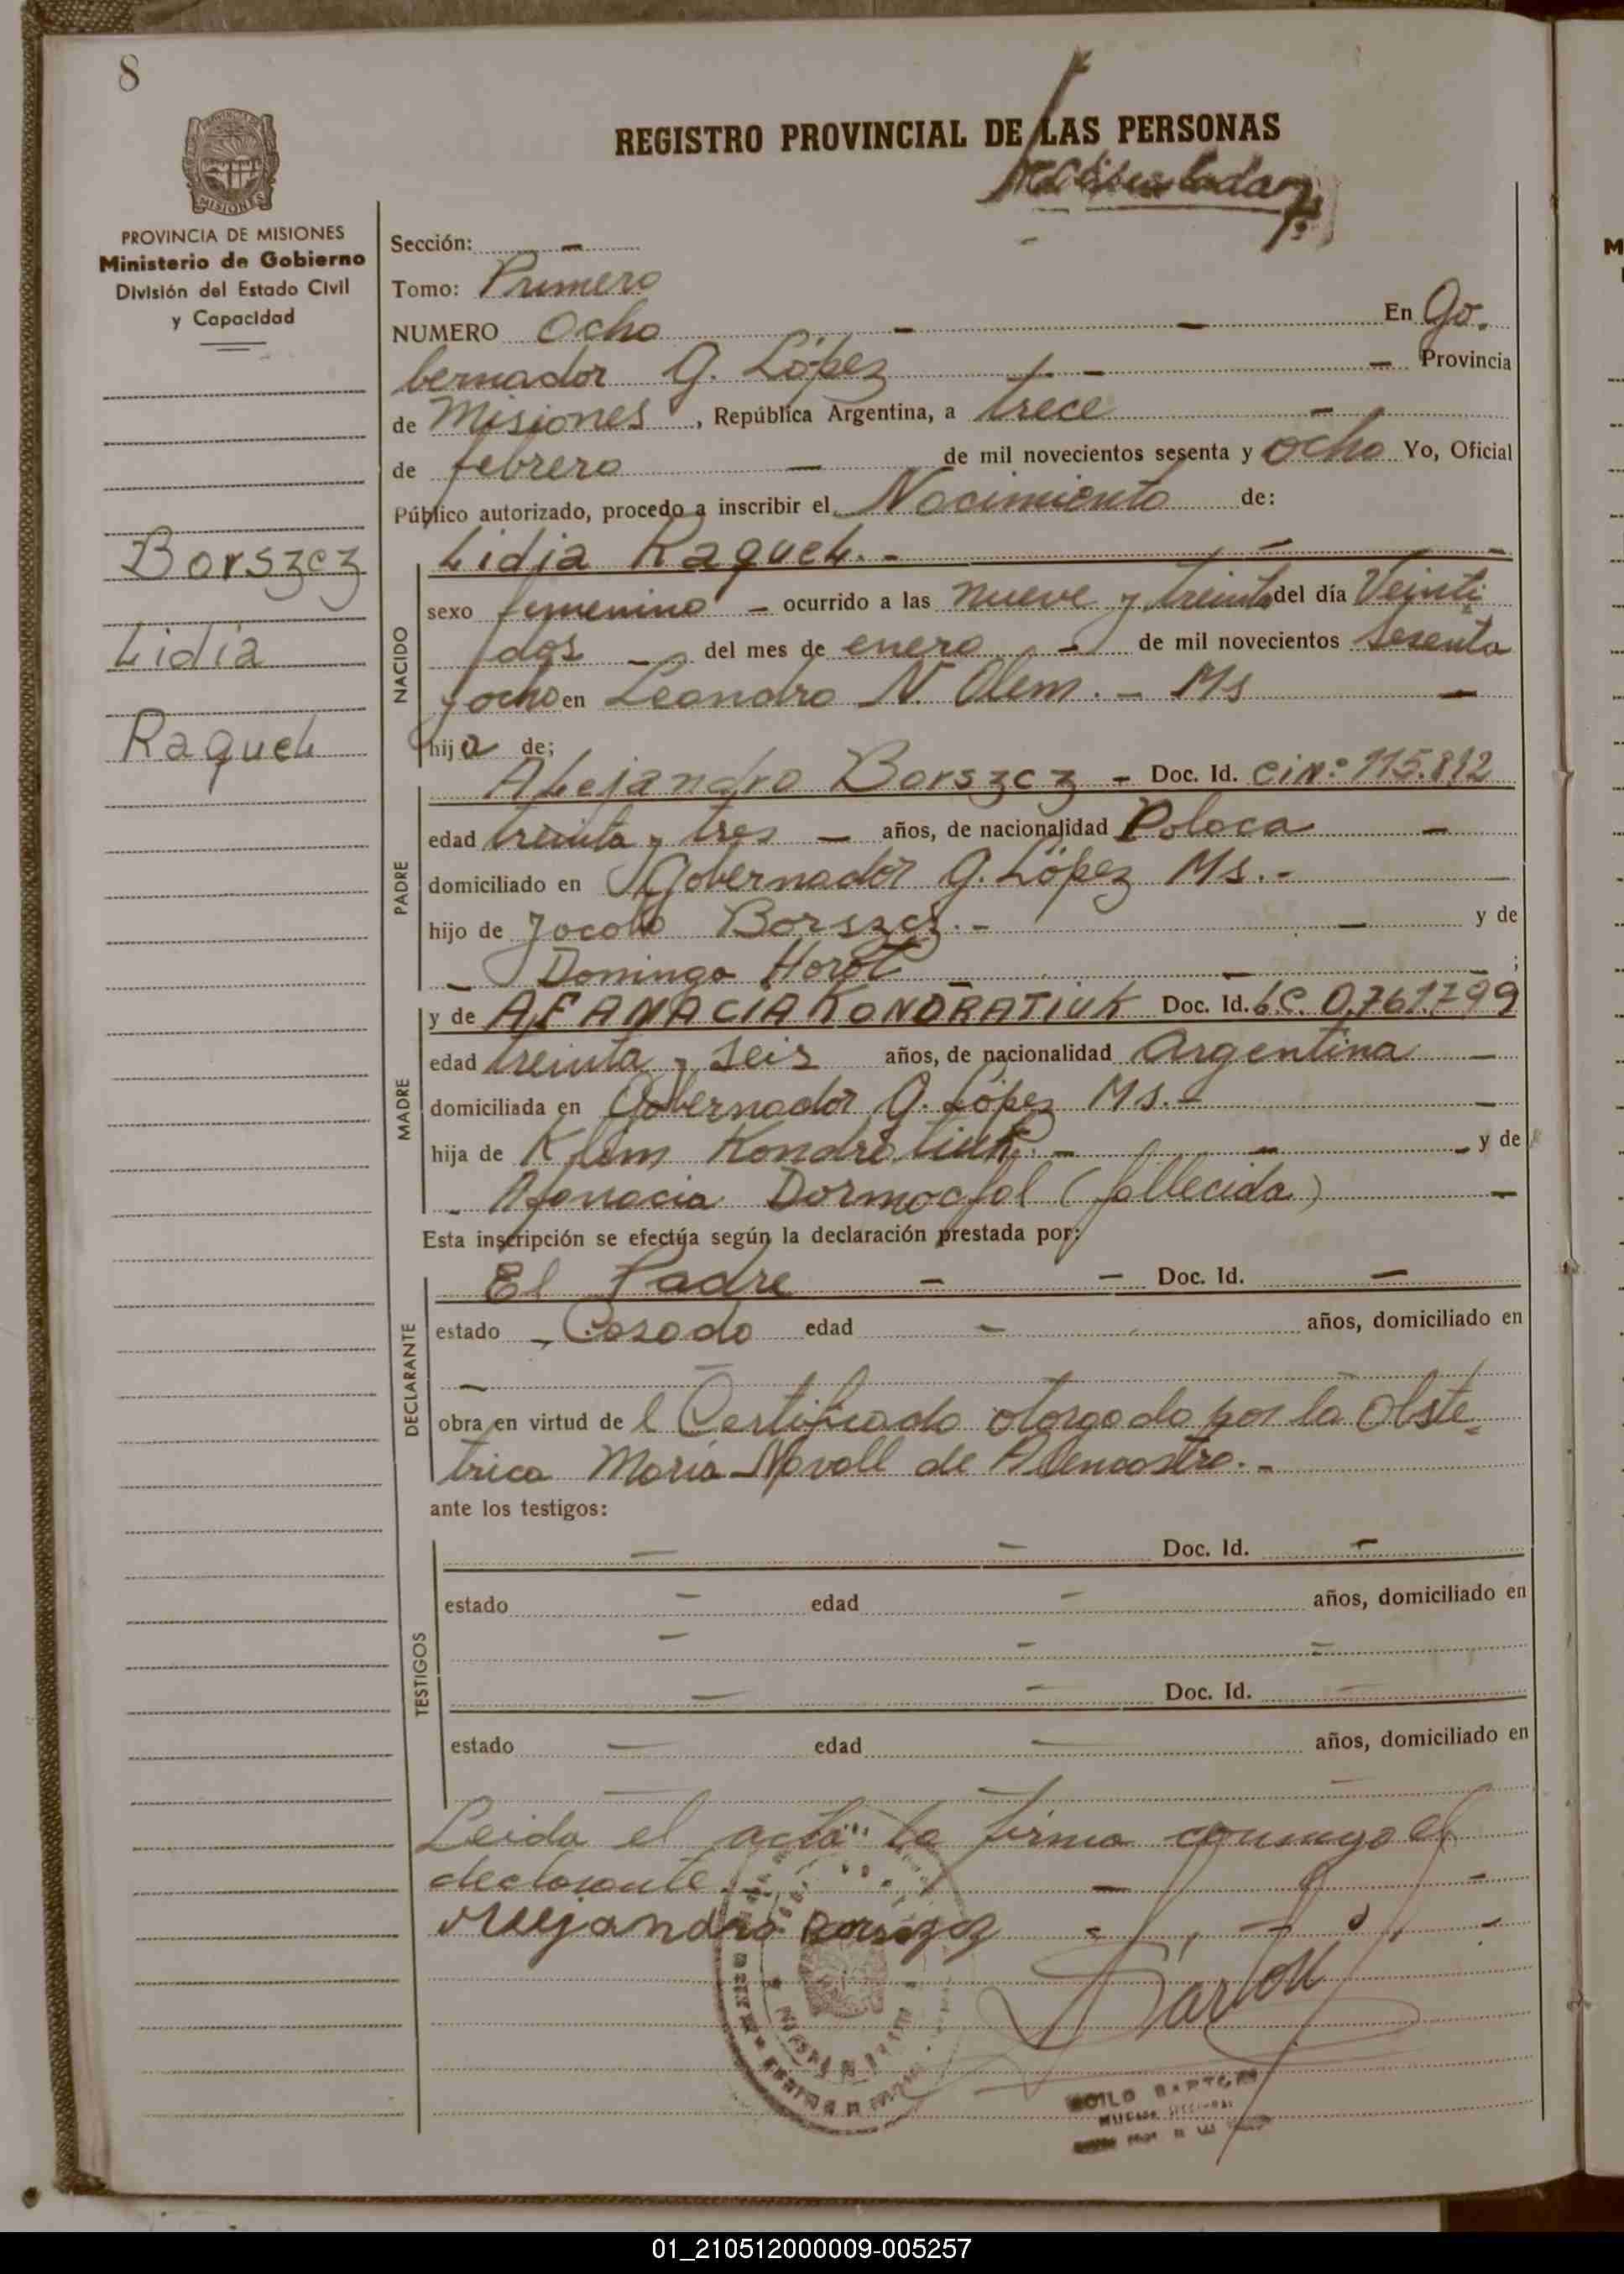 8
REGISTRO PROVINCIAL DE LAS PERSONAS
MISIONES
PROVINCIA DE MISIONES
Ministerio de Gobierno
División del Estado Civil
y Capacidad
Borszcz
Lidia
Raquel
Sección: -
Tomo: Primero
NUMERO Ocho - - En Go.
bernador G. López - - Provincia
de Misiones, República Argentina, a trece -
de febrero - de mil novecientos sesenta y ocho Yo, Oficial
Público autorizado, procedo a inscribir el Nacimiento de:
NACIDO
Lidia Raquel. - - -
sexo femenino - ocurrido a las nueve y treinta del día Veinti
dos - del mes de enero - de mil novecientos sesenta
y ocho en Leandro N. Alem. - Ms -
hija de;
PADRE
Alejandro Borszcz - Doc. Id. ci Nº 115.812
edad treinta y tres - años, de nacionalidad Polaca -
domiciliado en Gobernador G. López Ms. -
hijo de Jacobo Borszcz. - - y de
- Dominga Horot - - ;
MADRE
y de AFANACIA KONDRATIUK Doc. Id. L.C. 0.761.799
edad treinta y seis años, de nacionalidad Argentina -
domiciliada en Gobernador G. López Ms. - -
hija de Klem Kondratiuk. - - - y de
- Afanacia (fallecida) -
Esta inscripción se efectúa según la declaración prestada por:
DECLARANTE
El Padre - - Doc. Id. -
estado - Casado edad - años, domiciliado en
-
obra en virtud de l Certificado otorgado por la Obste=
trica María de Alencastro. -
ante los testigos:
TESTIGOS
- - Doc. Id. -
estado - edad - años, domiciliado en
- - -
- - Doc. Id. -
estado - edad - años, domiciliado en
Leida el acta la firma conmigo el
declarante. - - -
Alejandro Borszcz - - -
01_210512000009-005257